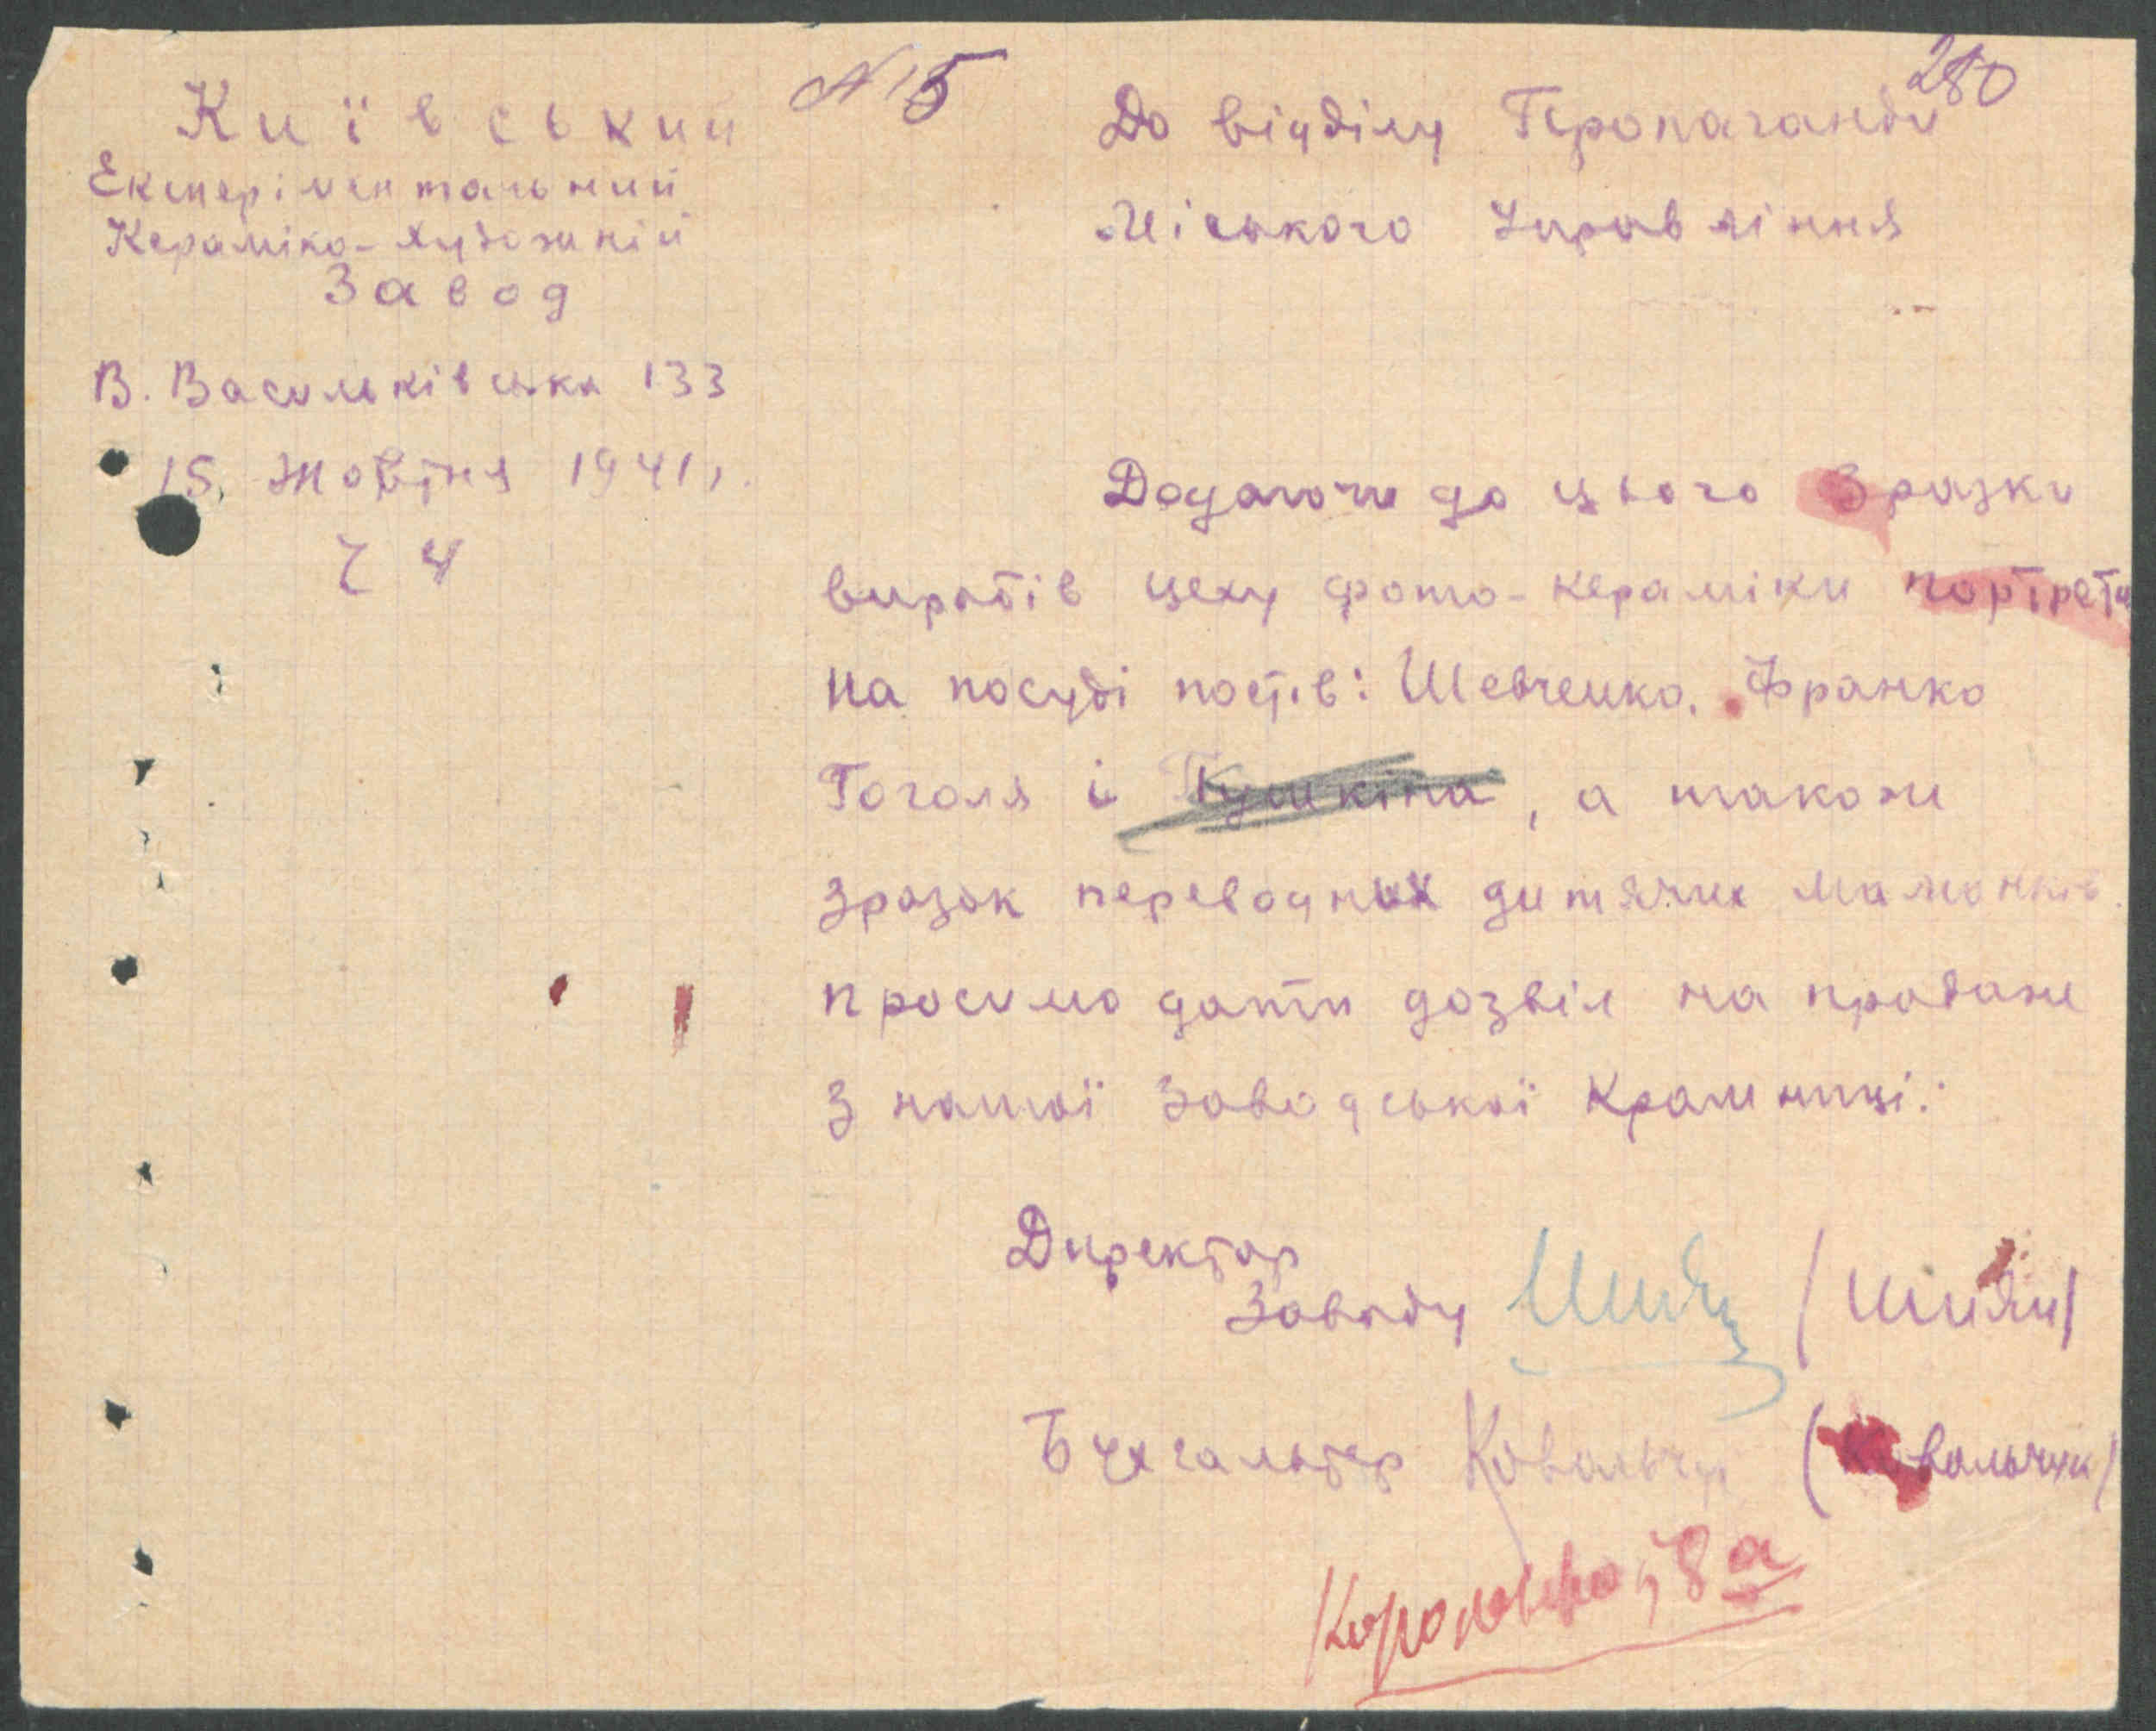 Київський
Експеріментальний
Кераміко-Художній
Завод
В. Васильківська 133
15. Жовтня 1941 р.
Ч 4
N 15
280
До відділу Пропаганди
Міського Управління
Додаючи до цього Зразки
виробів цеху фото-кераміки портрети
на посуді поетів: Шевченко, Франко
Гоголя і Пушкіна, а також
зразок переводних дитячих малюнків.
просимо дати дозвіл на продаж
з нашої Заводської Крамниці.
Директор
Заводу
Бухгалтер Ковальчук (Ковальчук)
48 а